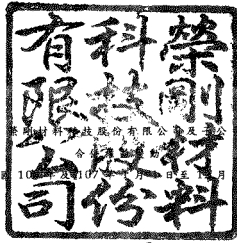 榮剛材料
科技股份
有限公司
榮剛材料科技股份有限公司及子公
合
動
年及107年
日至
月